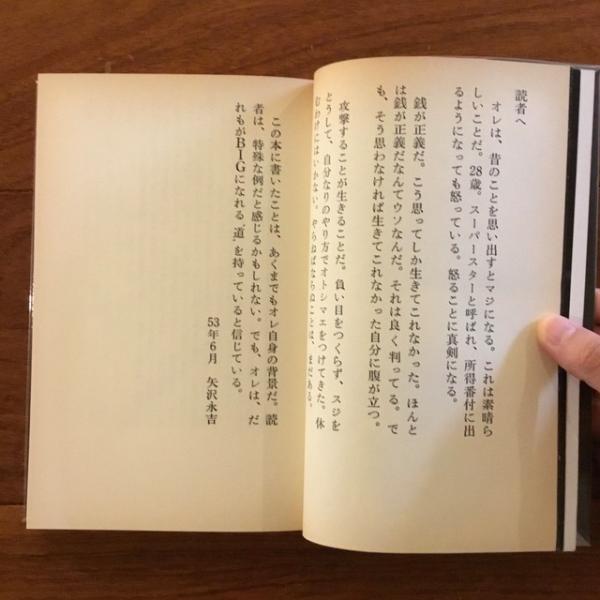 読者へ
オレは、昔のことを思い出すとマジになる。これは素晴ら
しいことだ。28歳。スーパースターと呼ばれ、所得番付に出
るようになっても怒っている。怒ることに真剣になる。
銭が正義だ。こう思ってしか生きてこれなかった。ほんと
は銭が正義だなんてウソなんだ。それは良く判ってる。で
も、そう思わなければ生きてこれなかった自分に腹が立つ。
攻撃することが生きることだ。負い目をつくらず、スジを
とうして、自分なりのやり方でオトシマエをつけてきた。休
むわけにはいかない。やらねばならぬことは、まだある。
この本に書いたことは、あくまでもオレ自身の背景だ。読
者は、特殊な例だと感じるかもしれない。でも、オレは、だ
れもがBIGになれる〝道〟を持っていると信じている。
53年6月 矢沢永吉